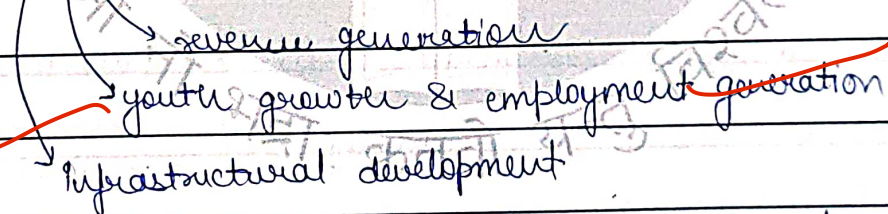 revenue generation
youth growth & employment generation
Infrastructural development